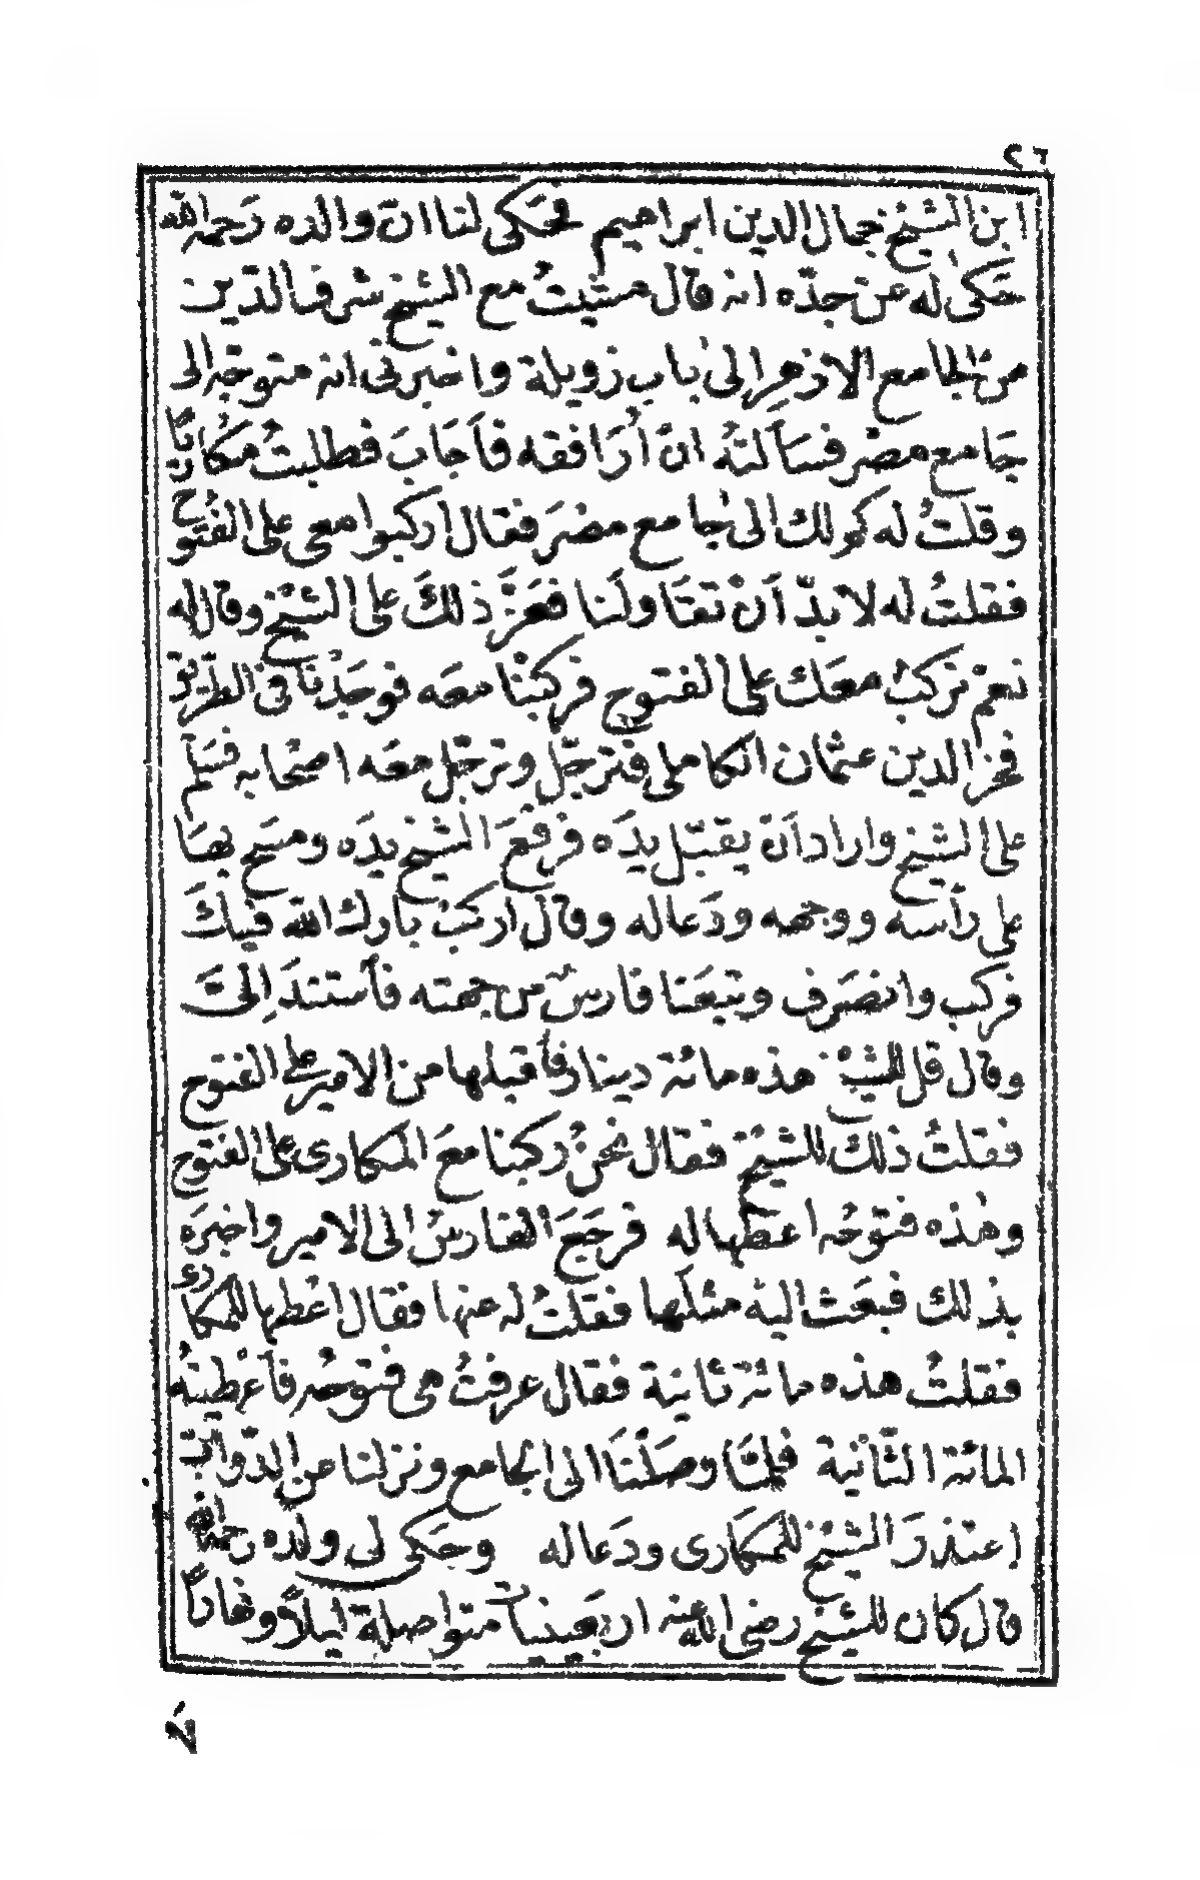 ٢٦
ابن الشيخ جمال الدين ابراهيم فحكى لنا ان والده رحمه الله
حكى له عن جدّه انه قال مشيتُ مع الشيخ شرف الدّين
من الجامع الازهر الى باب زويلة واخبرنى انه متوجّه الى
جامع مصر فسألتهُ انْ اُرَافقه فأجَابَ فطلبتُ مكاريًا
وقلتُ له كم لك الى جامع مصرَ فقال اركبوا معى على الفتوح
فقلتُ له لا بدّ أنْ تقَاولَنا فعَزَّ ذلكَ على الشيخ وقال له
نعمْ نركبُ معَك على الفتوح فركبْنا معَه فوجَدْنا فى الطريق
فخر الدين عثمان الكاملى فترجّل وترجّل معَه اصْحابه فسَلّم
على الشيخ واراد أنْ يقبّل يدَه فرفعَ الشيخ يدَه ومسَح بهَا
على رأسه ووجهه ودَعا له وقال اركبْ باركَ الله فيكَ
فركب وانصَرف وتبعَنا فارسٌ من جهته فأستندَ إلىَّ
وقال قل للشيخ هذه مائة دينار فأقبلها من الامير على الفتوح
فقلتُ ذلكَ للشيخ فقال نحنُ ركبنا معَ المكارى على الفتوح
وهذه فتوحُه اعطها له فرجَعَ الفارسُ الى الامير واخبرَه
بذلك فبعَث اليه مثلَها فقلتُ له عنها فقال اعْطها للمكارى
فقلتُ هذه مائة ثانية فقال عرفتُ هى فتوحُه فأعْطيتُه
المائة الثّانية فلمَّا وصَلْنَا الى الجامع ونزلنا عن الدّوابّ
اعتذرَ الشيخ للمكارى ودَعا له وحَكى لى ولده رحمه الله
قال كان للشيخ رضى الله عنه اربعينيات متواصلة ليلاً ونهارًا